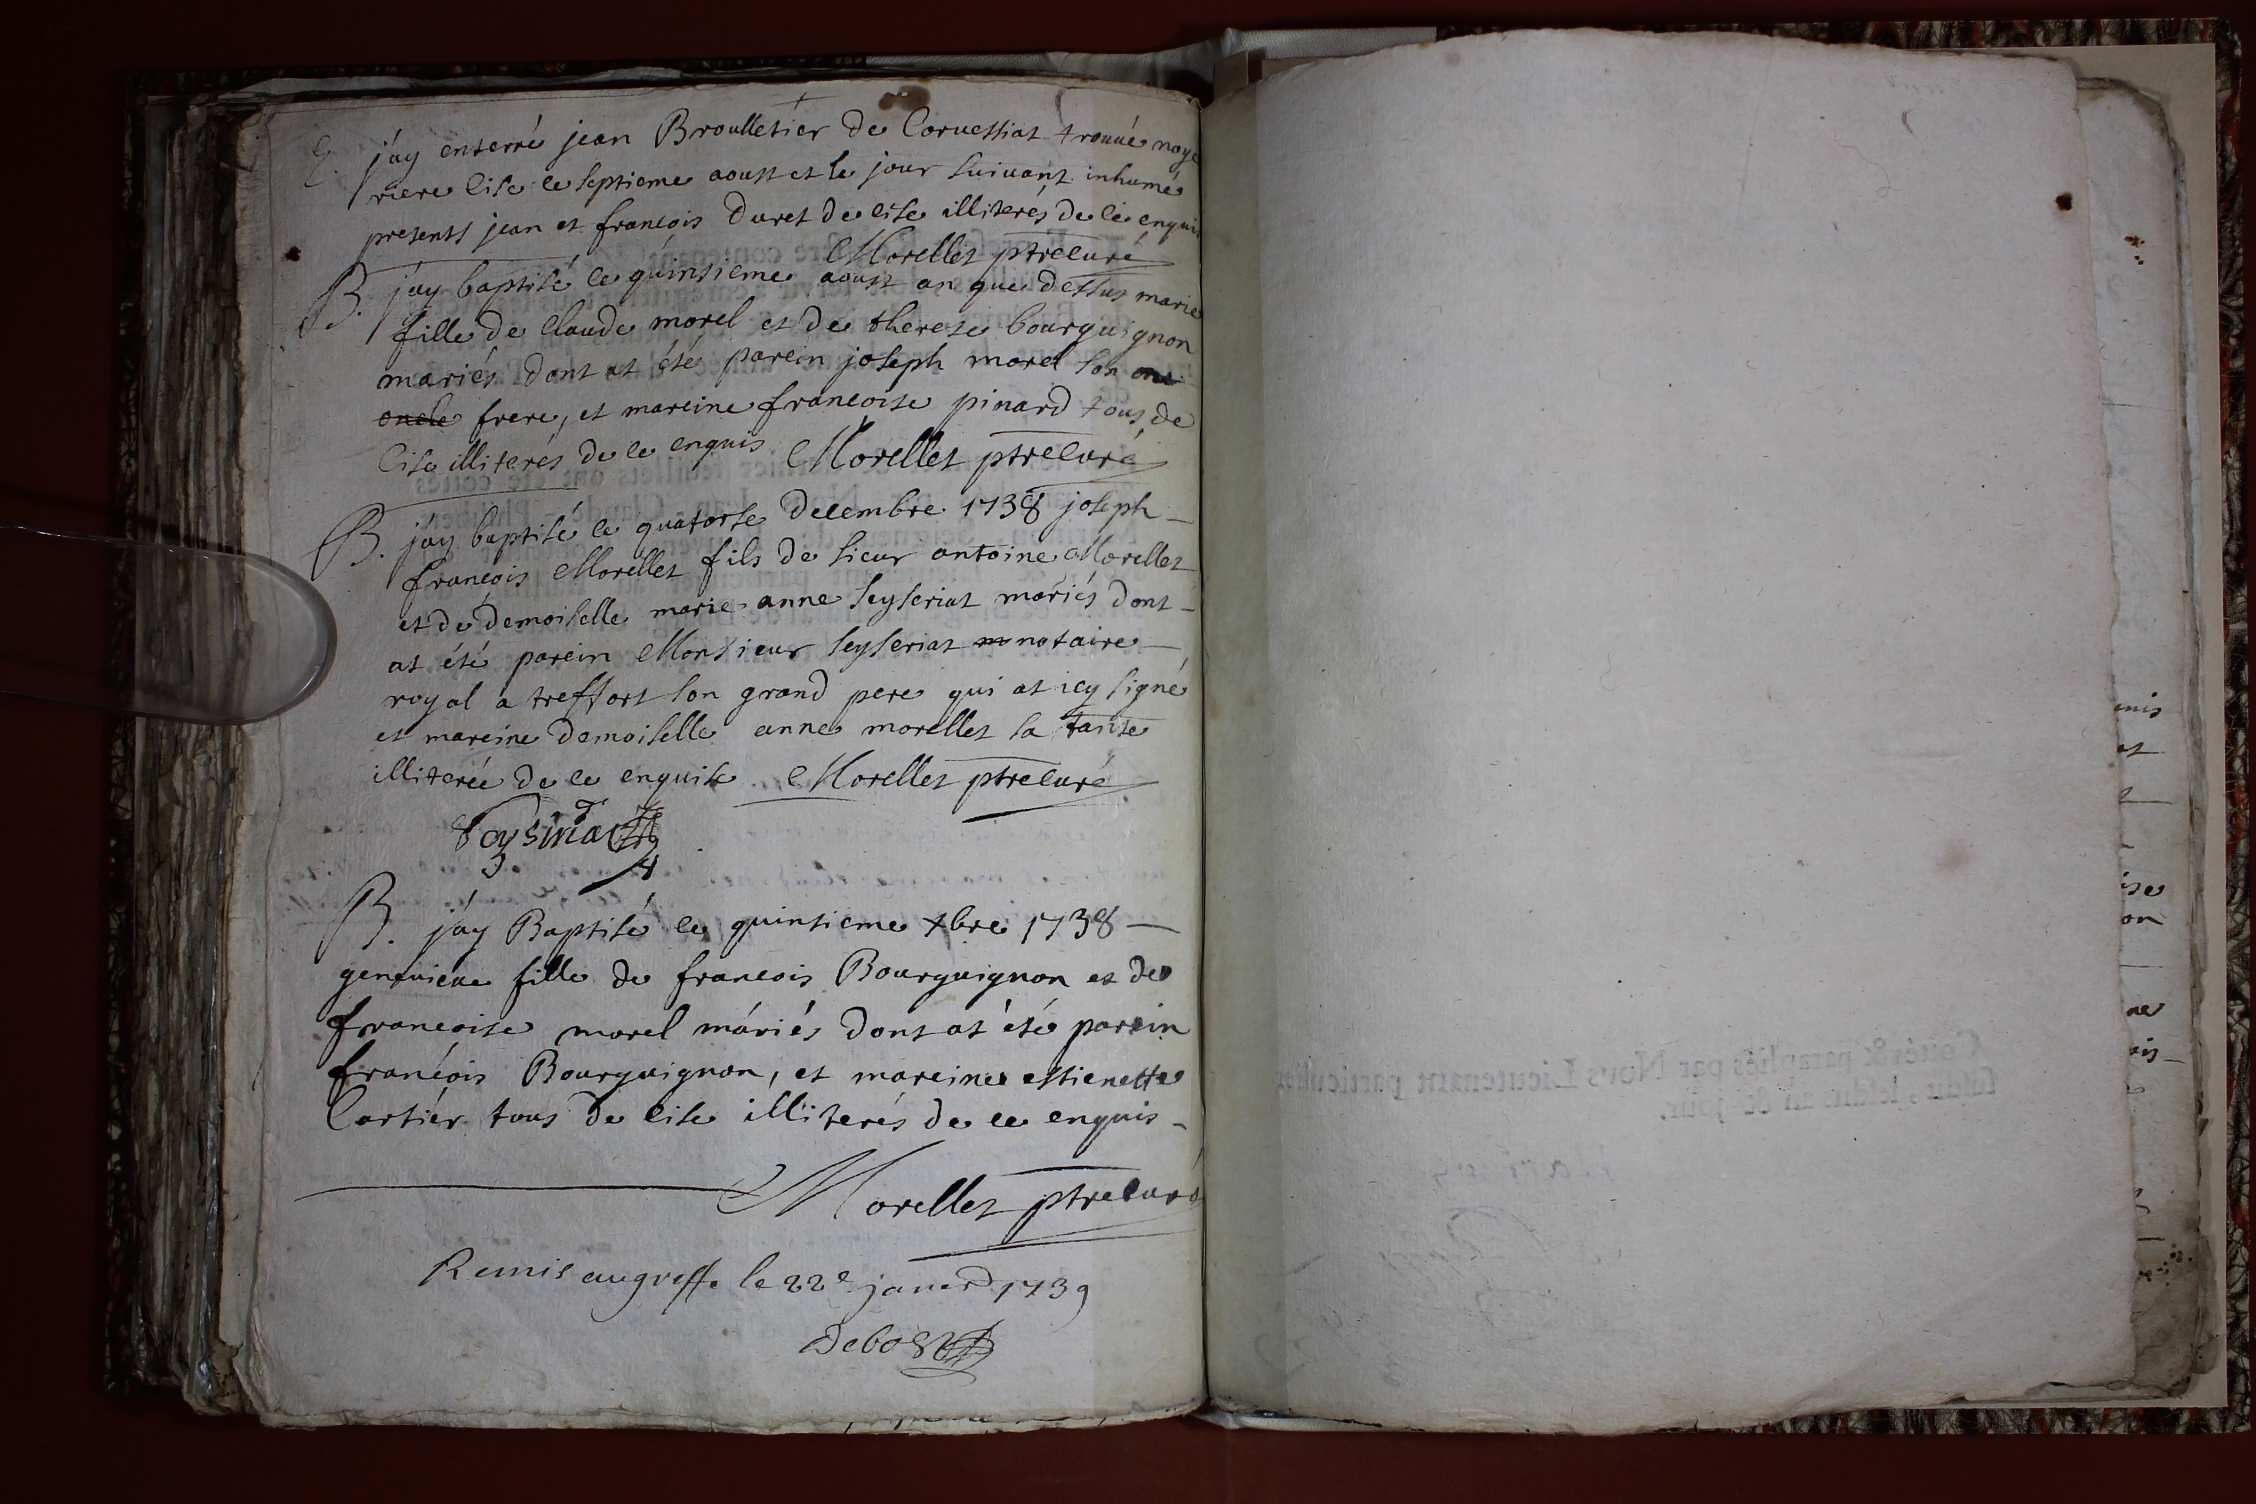 E. j'ay enterré jean Broulletier de Corvessiat trouué noyé
riere Cise le septieme aoust et le jour suivant inhumé
presents jean et françois duret de cise illiterés de ce enquis
Morellet ptre curé
B. j'ay baptisé le quinsieme aoust an que dessus marie
fille de claude morel et de therese bourguignon
mariés dont at été parein joseph morel son
oncle frere, et mareine francoise pinard tous de
Cise illiterés de ce enquis Morellet ptre curé
B. j'ay baptisé le quatorse decembre 1738 joseph
françois Morellet fils de sieur antoine Morellet
et de demoiselle marie anne seyseriat mariés dont
at été parein Monsieur seyseriat notaire
royal a treffort son grand pere qui at icy signé
et mareine demoiselle anne morellet sa tante
illiterée de ce enquise Morellet ptre curé
B. j'ay Baptisé le quinsieme xbre 1738
genevieve fille de francois Bourguignon et de
francoise morel máriés dont at été parein
françois Bourguignon, et mareine estienette
Cartier tous de cise illiterés de ce enquis
Morellet ptre curé
Remis au greffe le 22e janer 1739
Debost
Cottés & paraphés par Nous Lieutenant particulier
susdit, lesdits an & jour.